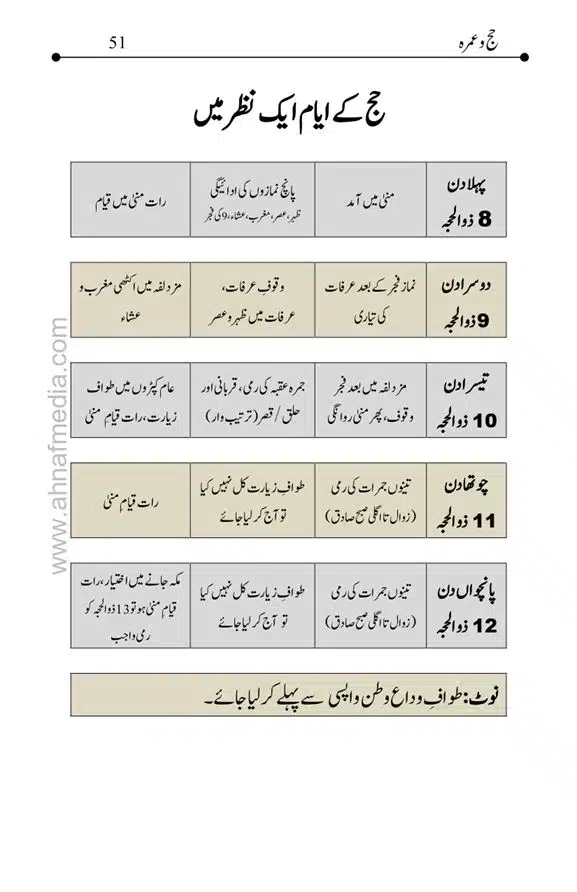 حج و عمرہ
51
حج کے ایام ایک نظر میں
پہلا دن
8 ذوالحجہ
منیٰ میں آمد
پانچ نمازوں کی ادائیگی
ظہر، عصر، مغرب، عشاء، 9 کی فجر
رات منیٰ میں قیام
دوسرا دن
9 ذوالحجہ
نماز فجر کے بعد عرفات
کی تیاری
وقوفِ عرفات،
عرفات میں ظہر و عصر
مزدلفہ میں اکٹھی مغرب و
عشاء
تیسرا دن
10 ذوالحجہ
مزدلفہ میں بعد فجر
وقوف، پھر منیٰ روانگی
جمرہ عقبہ کی رمی، قربانی اور
حلق / قصر (ترتیب وار)
عام کپڑوں میں طواف
زیارت، رات قیامِ منیٰ
چوتھا دن
11 ذوالحجہ
تینوں جمرات کی رمی
(زوال تا اگلی صبح صادق)
طوافِ زیارت کل نہیں کیا
تو آج کر لیا جائے
رات قیامِ منیٰ
پانچواں دن
12 ذوالحجہ
تینوں جمرات کی رمی
(زوال تا اگلی صبح صادق)
طوافِ زیارت کل نہیں کیا
تو آج کر لیا جائے
مکہ جانے میں اختیار، رات
قیامِ منیٰ ہو تو 13 ذوالحجہ کو
رمی واجب
نوٹ: طوافِ وداع وطن واپسی سے پہلے کر لیا جائے۔
www.ahnafmedia.com